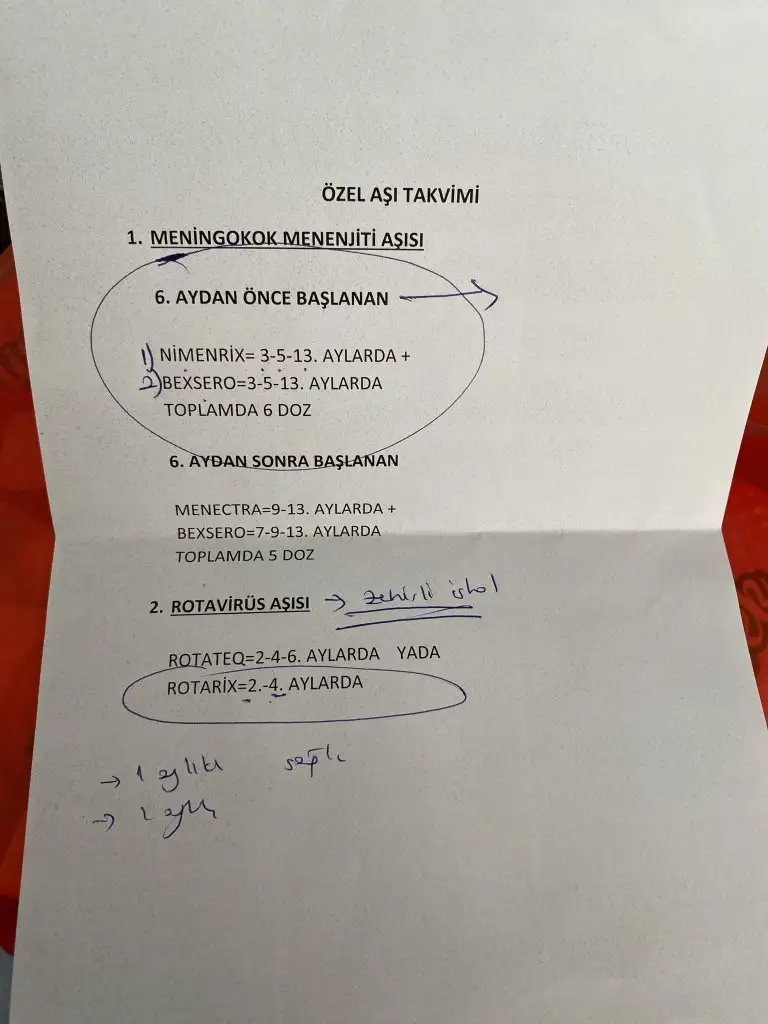 ÖZEL AŞI TAKVİMİ
1. MENİNGOKOK MENENJİTİ AŞISI
6. AYDAN ÖNCE BAŞLANAN →
1) NİMENRİX= 3-5-13. AYLARDA +
2) BEXSERO=3-5-13. AYLARDA
TOPLAMDA 6 DOZ
6. AYDAN SONRA BAŞLANAN
MENECTRA=9-13. AYLARDA +
BEXSERO=7-9-13. AYLARDA
TOPLAMDA 5 DOZ
2. ROTAVİRÜS AŞISI → zehirli ishal
ROTATEQ=2-4-6. AYLARDA YADA
ROTARİX=2.-4. AYLARDA
→ 1 aylık
→